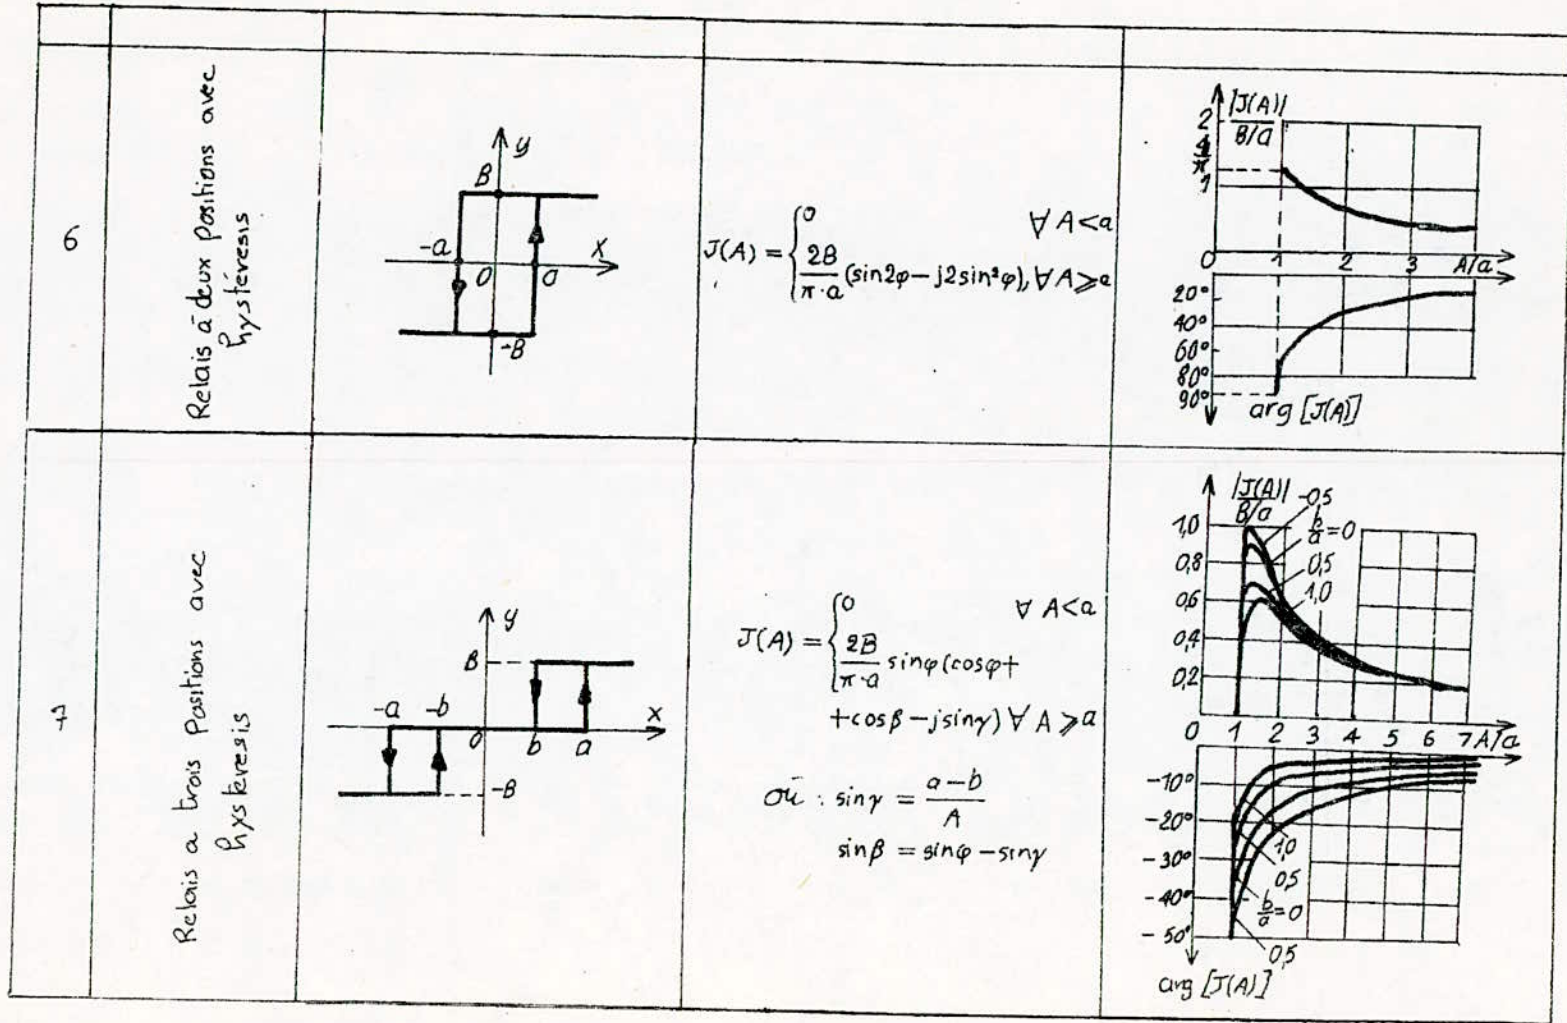 6
Relais à deux positions avec
hystéresis
y
B
-a
0
a
X
-B
J(A) = { 0 ∀ A<a
2B/π·a (sin2φ - j2sin²φ), ∀ A⩾a
|J(A)|
B/a
2
4/π
1
0 1 2 3 A/a
20°
40°
60°
80°
90°
arg [J(A)]
7
Relais a trois Positions avec
hystéresis
y
B
-a -b 0 b a x
-B
J(A) = { 0 ∀ A<a
2B/π·a sinφ(cosφ+
+cosβ - jsinγ) ∀ A ⩾a
où : sinγ = a-b/A
sinβ = sinφ - sinγ
|J(A)|
B/a
-0,5
b/a=0
0,5
1,0
1,0
0,8
0,6
0,4
0,2
0 1 2 3 4 5 6 7 A/a
-10°
-20°
-30°
-40°
-50°
1,0
0,5
b/a=0
0,5
arg [J(A)]